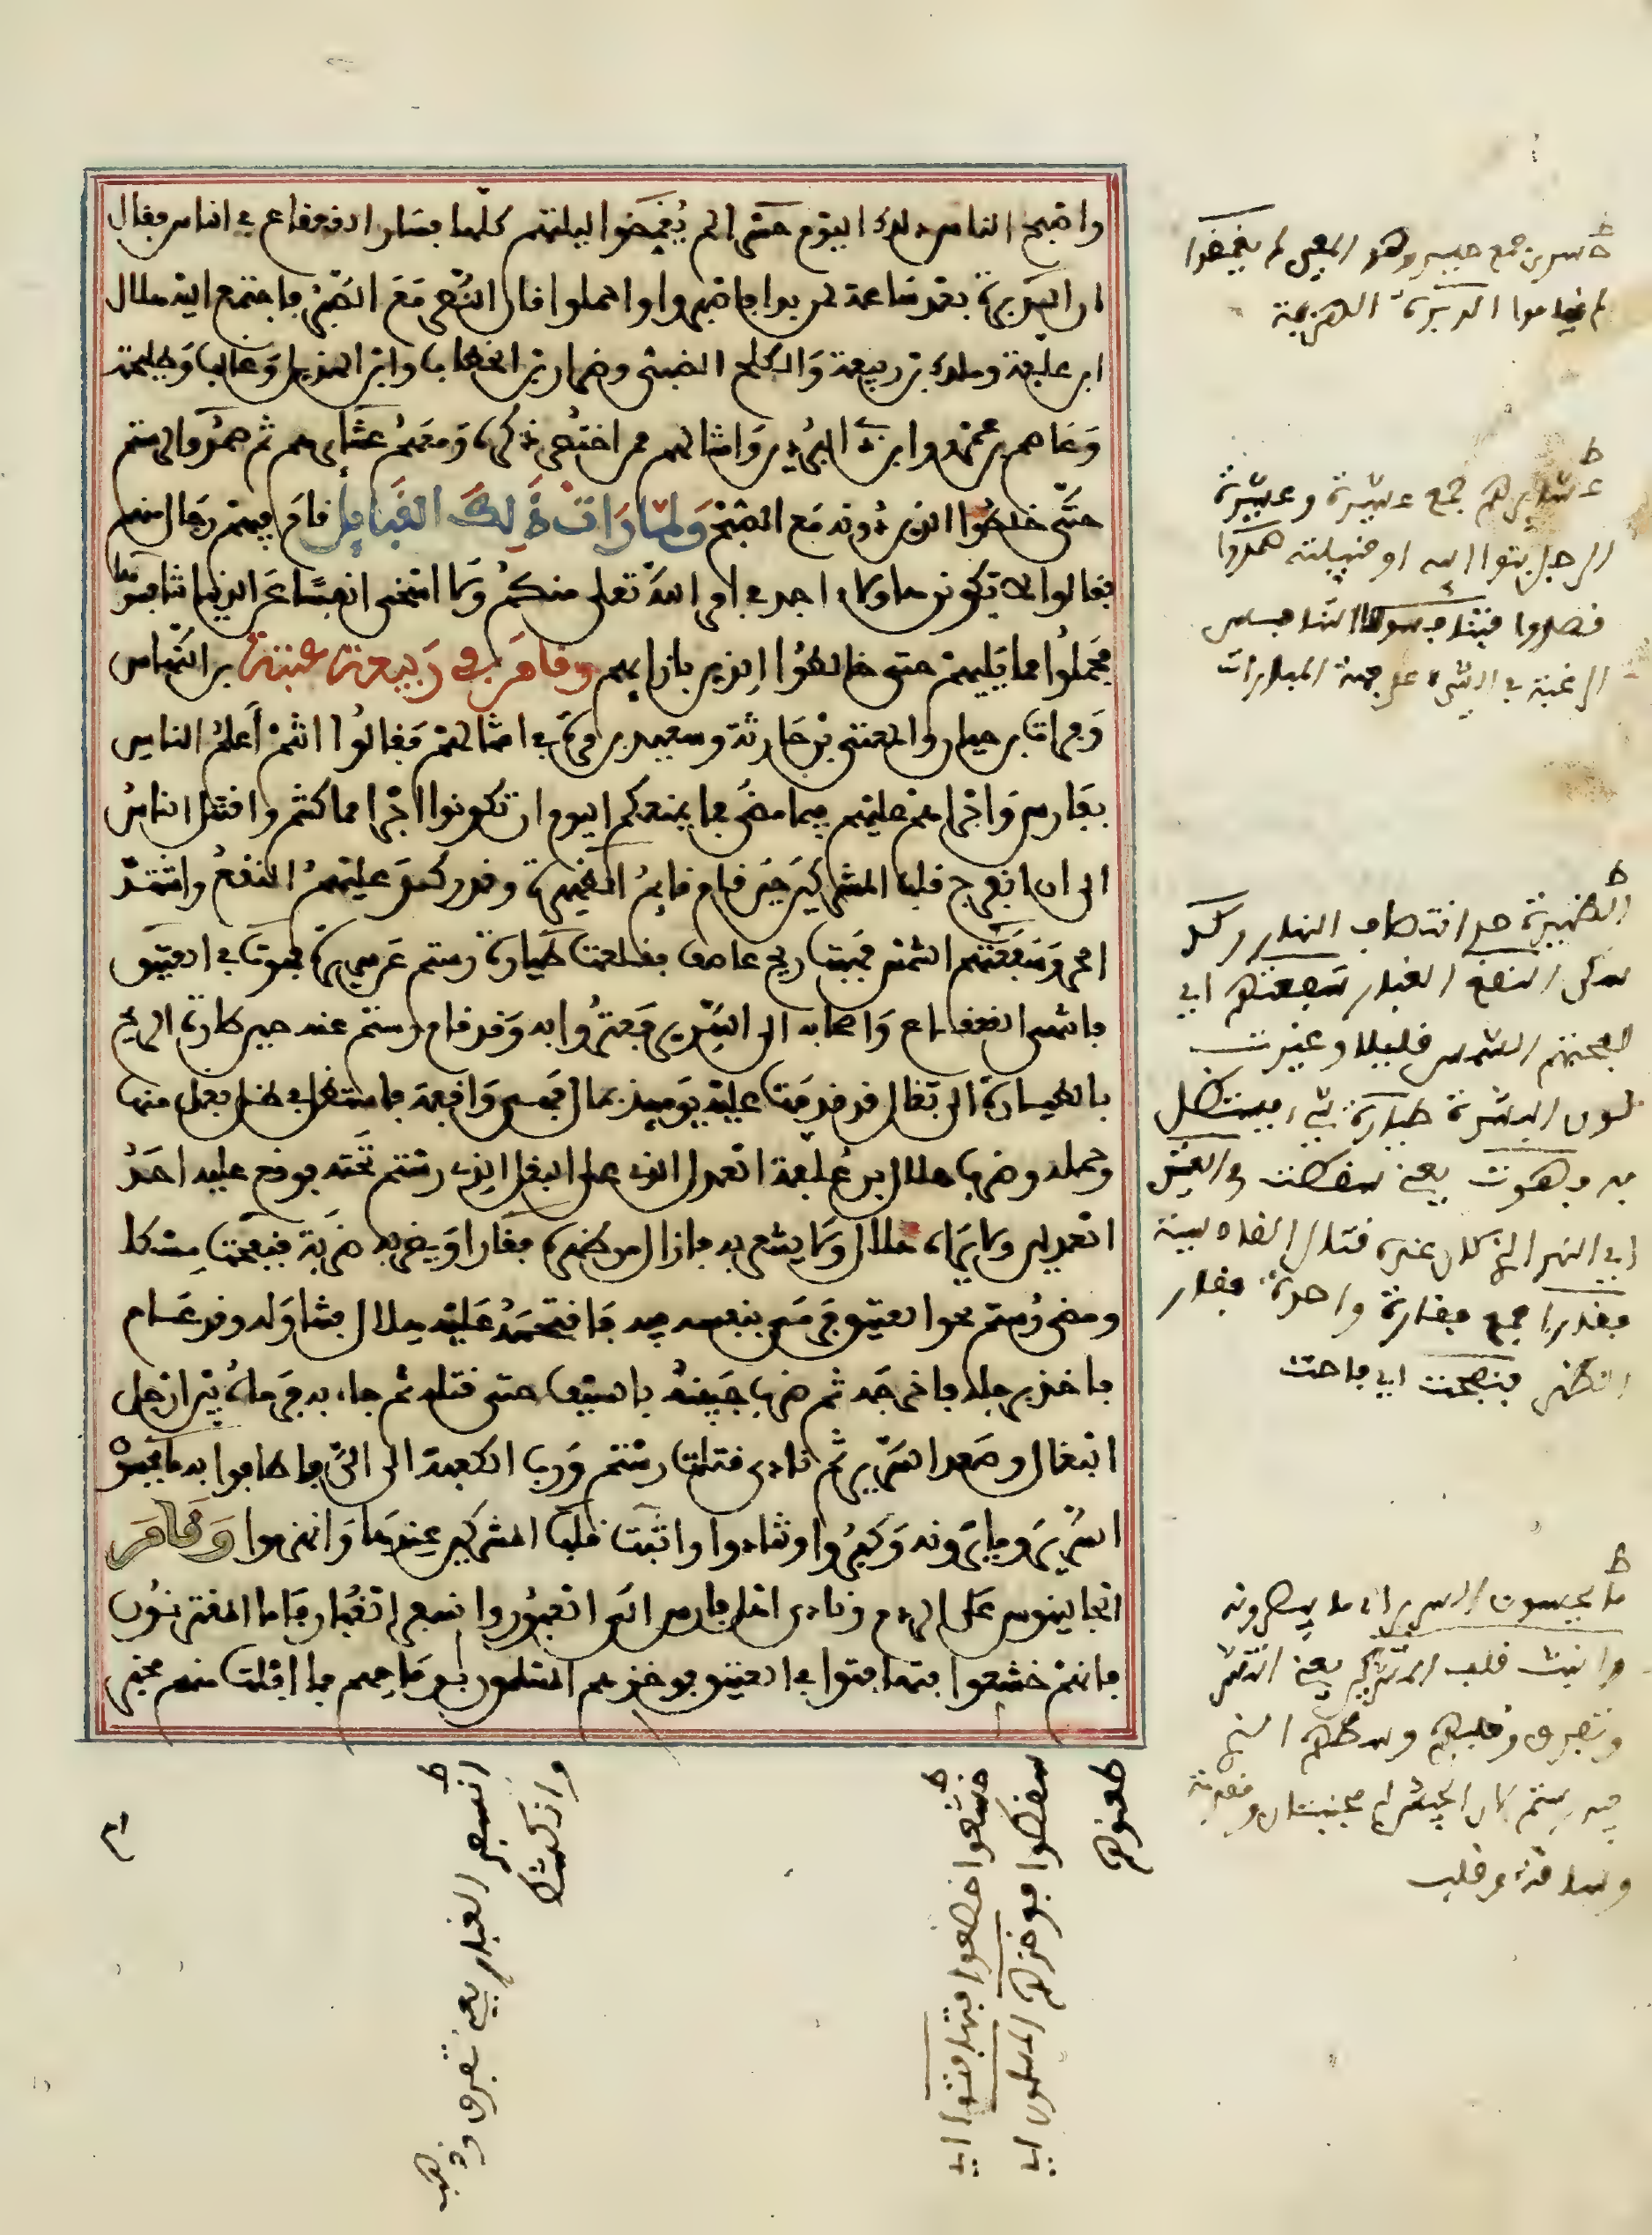 واصبح الناس ذلك اليوم حسرى لم يغمضوا ليلتهم كلها فسار القعقاع في الناس فقال
ان الدبرة بعد ساعة لمن بدا فاصبروا واحملوا فان النصر مع الصبر فاجتمع اليه هلال
ابن علفة ومالك بن ربيعة والكلح الضبي وضرار بن الخطاب وابن الهذيل وغالب وطليحة
وعاصم بن عمرو وابن ذي البردين وامثالهم ممن اختصر ذكره ومعهم عشائرهم ثم صمدوا لرستم
حتى خالطوا الذين دونه مع الصبح ولما رات ذلك القبايل قام فيهم رجال منهم
فقالوا لا يكونن هاولاء اجد في امر الله تعلى منكم ولا اسخى انفسا عن الدنيا تنافسوها
فحملوا مما يليهم حتى خالطوا الذين بازايهم وقام في ربيعة عتبة بن النهاس
وفرات بن حيان والمعنى بن حارثة وسعيد بن مرة في امثالهم فقالوا انتم أعلم الناس
بفارس واجرا منهم عليهم فيما مضى فما يمنعكم اليوم ان تكونوا اجرا مما كنتم واقتتل الناس
الى ان انفرج قلب المشركين حين قام قايم الظهيرة وقد ركد عليهم النقع واشتد
الحر وسفعتهم الشمس فهبت ريح عاصف فقلعت طيارة رستم عن سريره فهوت في العتيق
فانتهى القعقاع واصحابه الى السرير فعثروا به وقد قام رستم عنه حين طارت الريح
بالطيارة الى بغال قد قدمت عليه يوميذ بمال فهي واقفة فاستظل في ظل بغل منها
وحمله وضرب هلال بن علفة العدل الذي على البغل الذي رستم تحته فوقع عليه احد
العدلين ولا يراه هلال ولا يشعر به فازال من ظهره فقارا ويضربه ضربة فنفحت مسكا
ومضى رستم نحو العتيق فرمى بنفسه فيه فاقتحمه عليه هلال فتناوله وقد عام
فاخذ برجله فاخرجه ثم ضرب جبينه بالسيف حتى قتله ثم جاء به فرماه بين ارجل
البغال وصعد السرير ثم نادى قتلت رستم ورب الكعبة الي الي فاطافوا به ما يحسون
السرير وما يرونه وكبروا وتنادوا وانبت قلب المشركين عندها وانهزموا وقام
الجالينوس على الردم ونادى اهل فارس الى العبور وانسعر الغبار فاما المقترنون
فانهم خشعوا فتهافتوا في العتيق فوخزهم المسلمون برماحهم فما افلت منهم مخبر
حسرى جمع حسير وهو المعيي لم يغمضوا
لم يناموا الدبرة الهزيمة
عشايرهم جمع عشيرة وعشيرة
الرجل بنوا ابيه او قبيلته صمدوا
قصدوا فتنافسوها التنافس
الرغبة في الشيء على جهة المبارات
الظهيرة حد انتصاف النهار ركد
سكن النقع الغبار سفعتهم اي
لفحتهم الشمس قليلا وغيرت
لون البشرة طيارة شيء يستظل
به وهوت يعني سقطت في العتيق
اي النهر الذي كان عنده قتال القادسية
فقارا جمع فقارة واحدة فقار
الظهر فنفحت اي فاحت
ما يحسون السرير اي ما يبصرونه
وانبت قلب المشركين يعني انتثر
وتفرق وقلبهم وسطهم الذي
فيه رستم لان الجيش له مجنبتان ومقدمة
وساقة وقلب
انسعر الغبار يعني تفرق وذهب
وانكشف
خشعوا خضعوا فتهافتوا اي
سقطوا فوخزهم المسلمون اي
طعنوهم